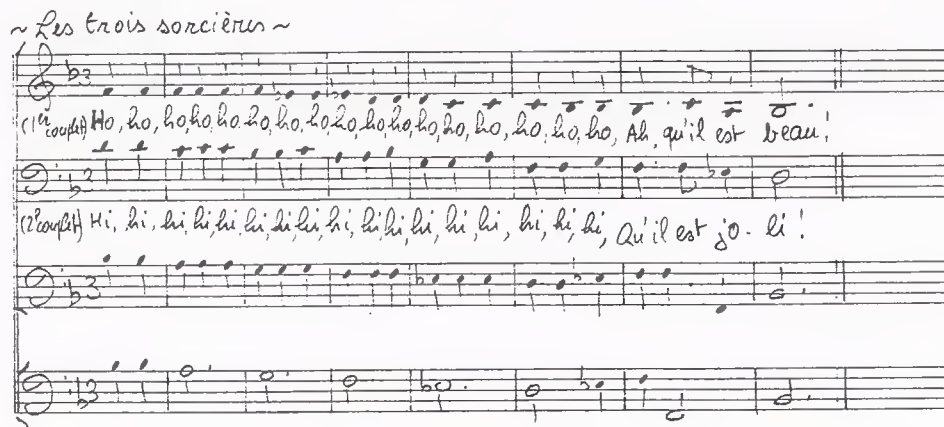 ~ Les trois sorcières ~
(1er couplet) Ho, ho, ho, ho, ho, ho, ho, ho, ho, ho, ho, ho, ho, ho, ho, ho, ho, ho, Ah, qu'il est beau!
(2e couplet) Hi, hi, hi, hi, hi, hi, hi, hi, hi, hi, hi, hi, hi, hi, hi, hi, hi, Qu'il est jo - li!